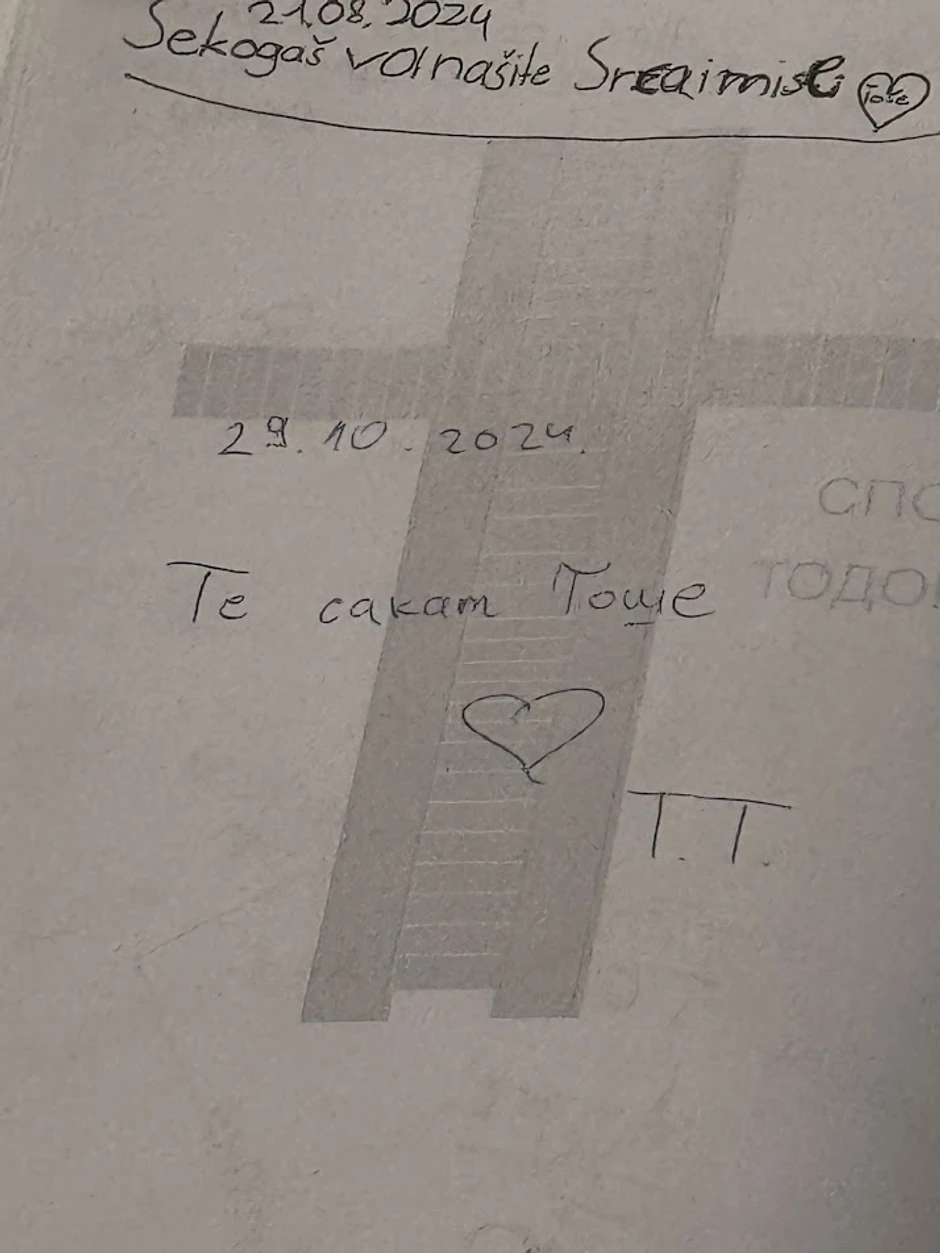 21.08.2024
Sekogaš vo našite Srca i misli Toše
29.10.2024.
СПО
Те сакам Тоше ТОДО
Т.Т.